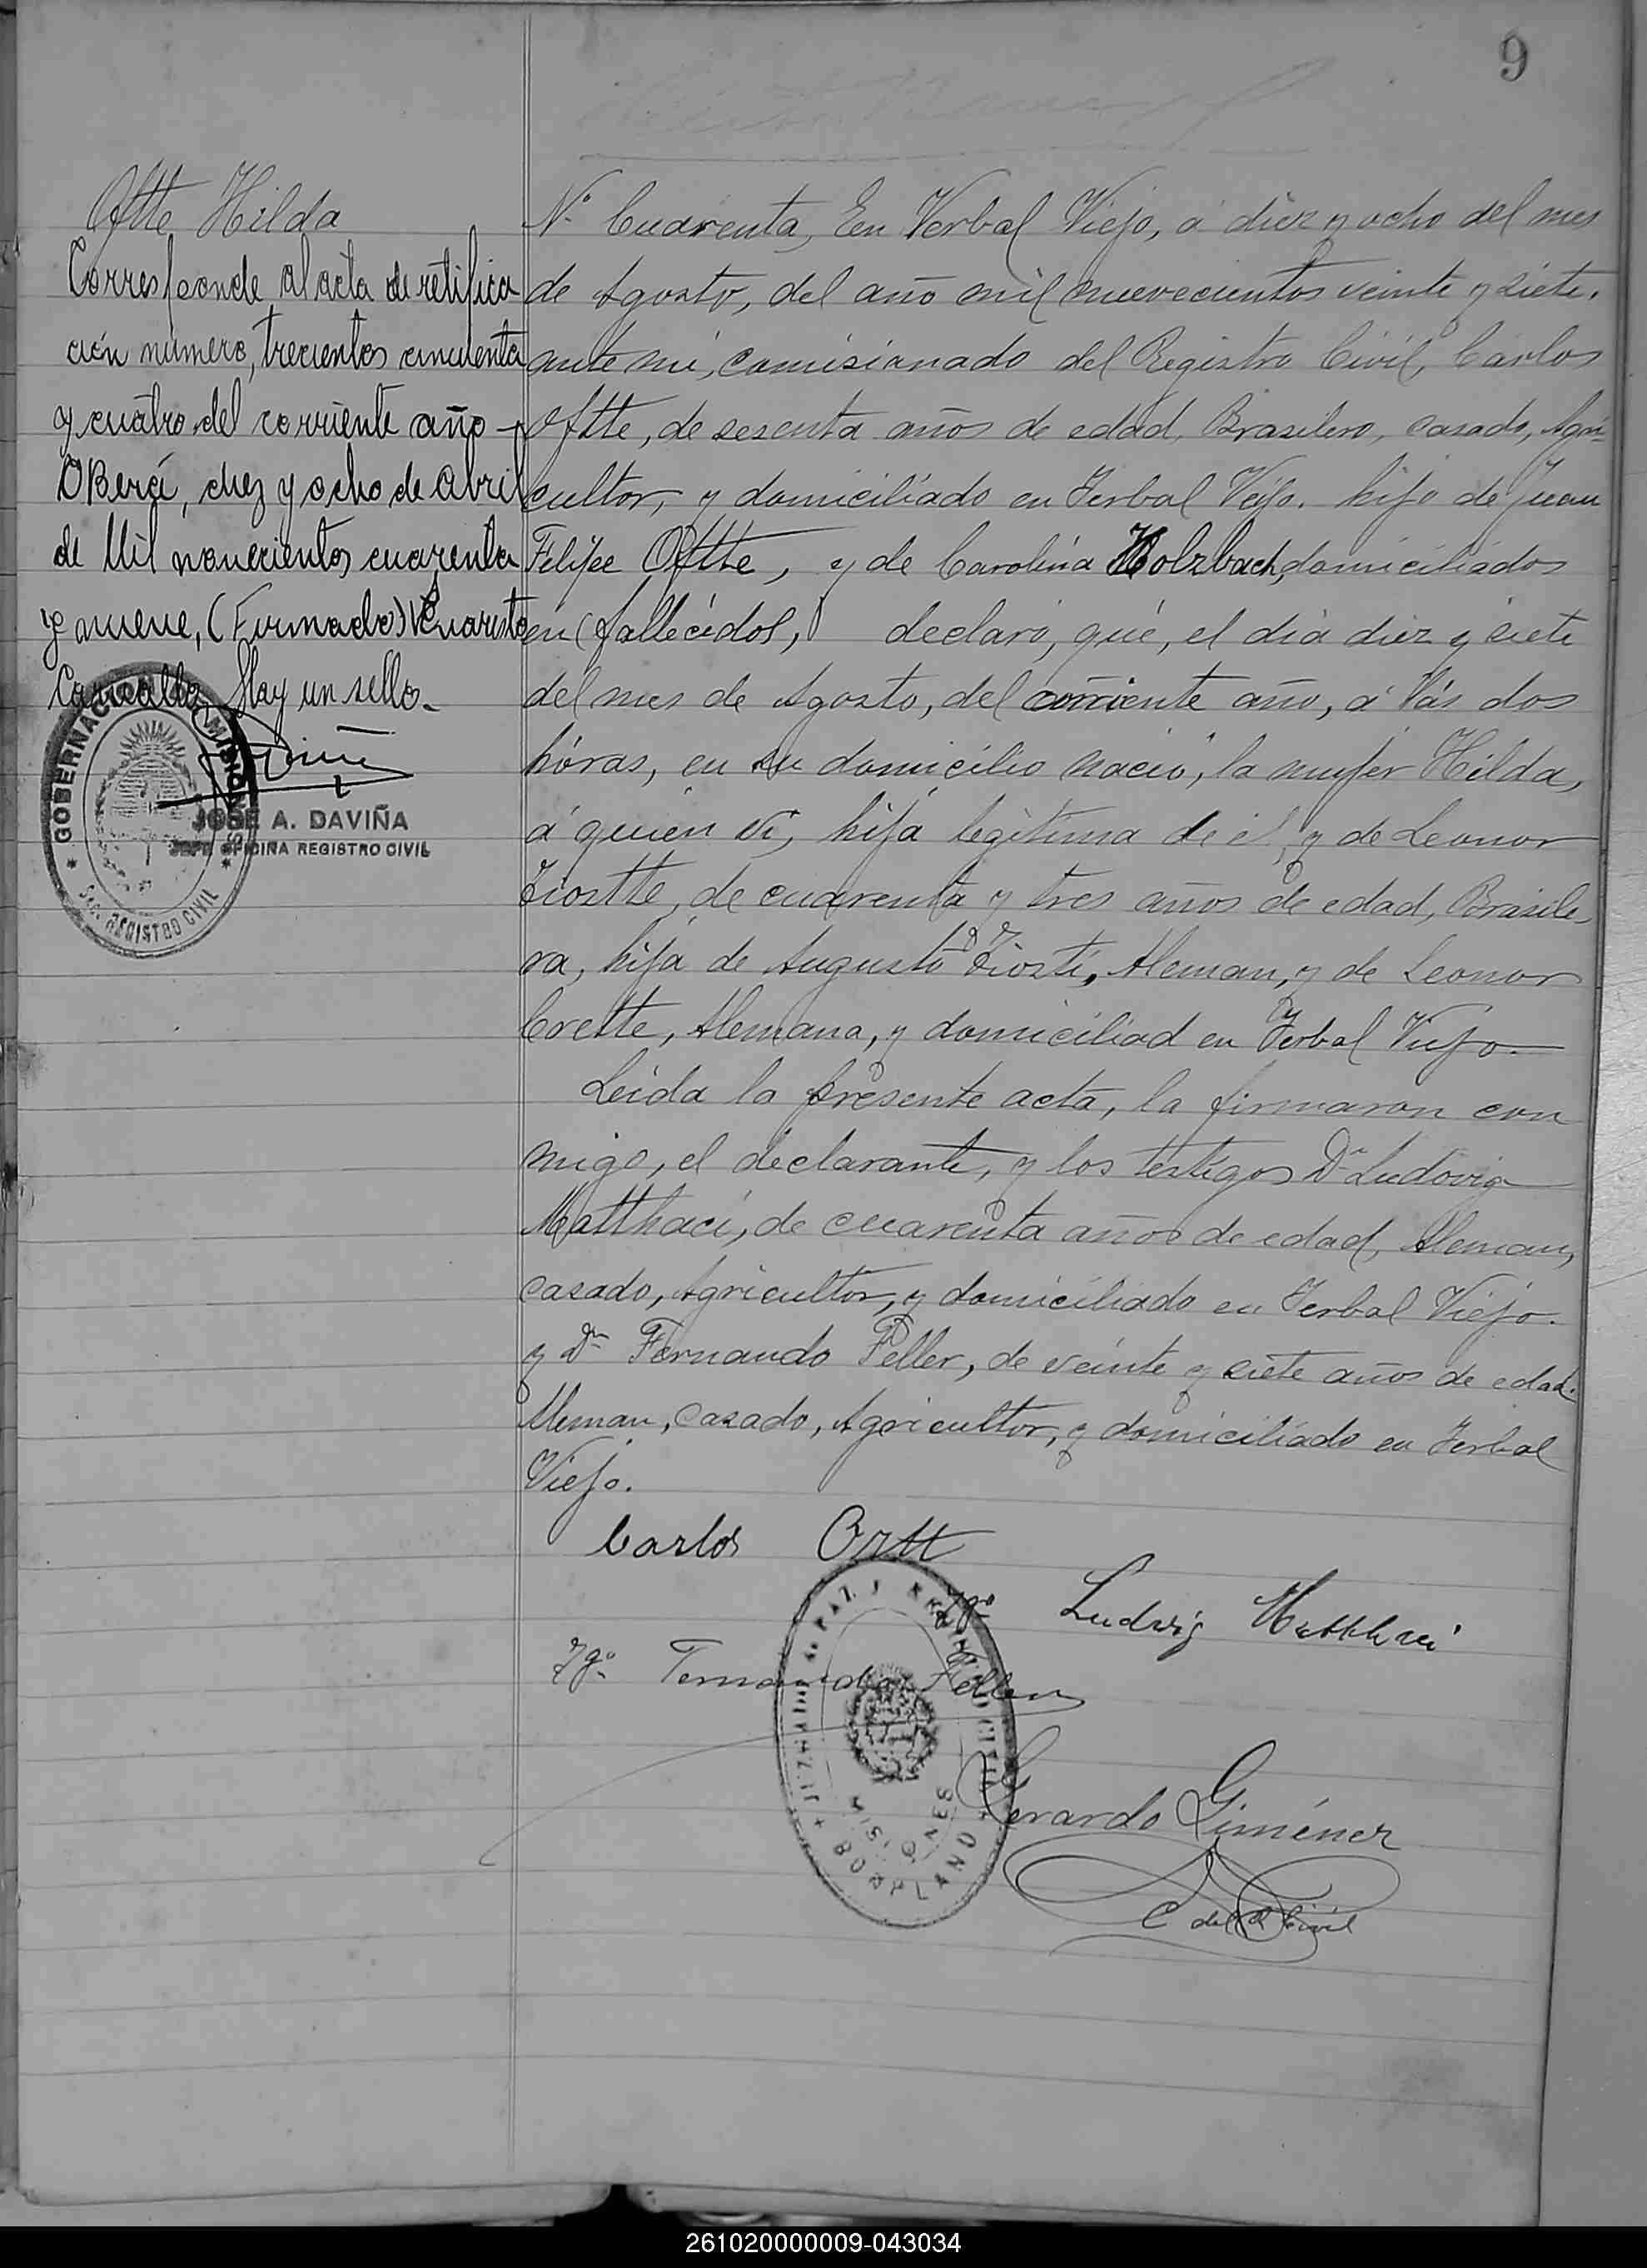 9
Oftte Hilda
Corresponde al acta de retifica
ción número, trecientos cincuenta
y cuatro del corriente año -
OBerá, diez y ocho de Abril
de Mil novecientos cuarenta
y nueve, (Firmado) Evaristo
Hay un sello.-
GOBERNACION MISIONES
SEC. REGISTRO CIVIL
JOSE A. DAVIÑA
JEFE OFICINA REGISTRO CIVIL
Nº Cuarenta, En Yerbal Viejo, á diez y ocho del mes
de Agosto, del año mil nuevecientos veinte y siete.
ante mi, comisionado del Registro Civil, Carlos
Oftte, de sesenta años de edad, Brasilero, casado, Agri-
cultor, y domiciliado en Yerbal Viejo. hijo de Juan
Felipe Oftte, y de Carolina Holzbach, domiciliados
en (fallecidos,) declaró, qué, el dia diez y siete
del mes de Agosto, del corriente año, á lás dos
hóras, en su domicilio nació, la mujer Hilda,
á quien ví, hija legítima de él, y de Leonor
Tiostte, de cuarenta y tres años de edad, Brasile-
ra, hija de Augusto Tiosti, Aleman, y de Leonor
Crette, Alemana, y domiciliad en Yerbal Viejo.
Leida la presente acta, la firmaron con
migo, el declarante, y los testigos Dn Ludovig
Matthaei, de cuarenta años de edad, Aleman,
casado, Agricultor, y domiciliado en Yerbal Viejo.
y Dn Fernando Feller, de veinte y siete años de edad.
Aleman, Casado, Agricultor, y domiciliado en Yerbal
Viejo.
Carlos Ortt
Tgo Ludwig Matthaei
Tgo. Fernando Feller
BONPLAND
MISIONES
Gerardo Giménez
C del R Civil
261020000009-043034